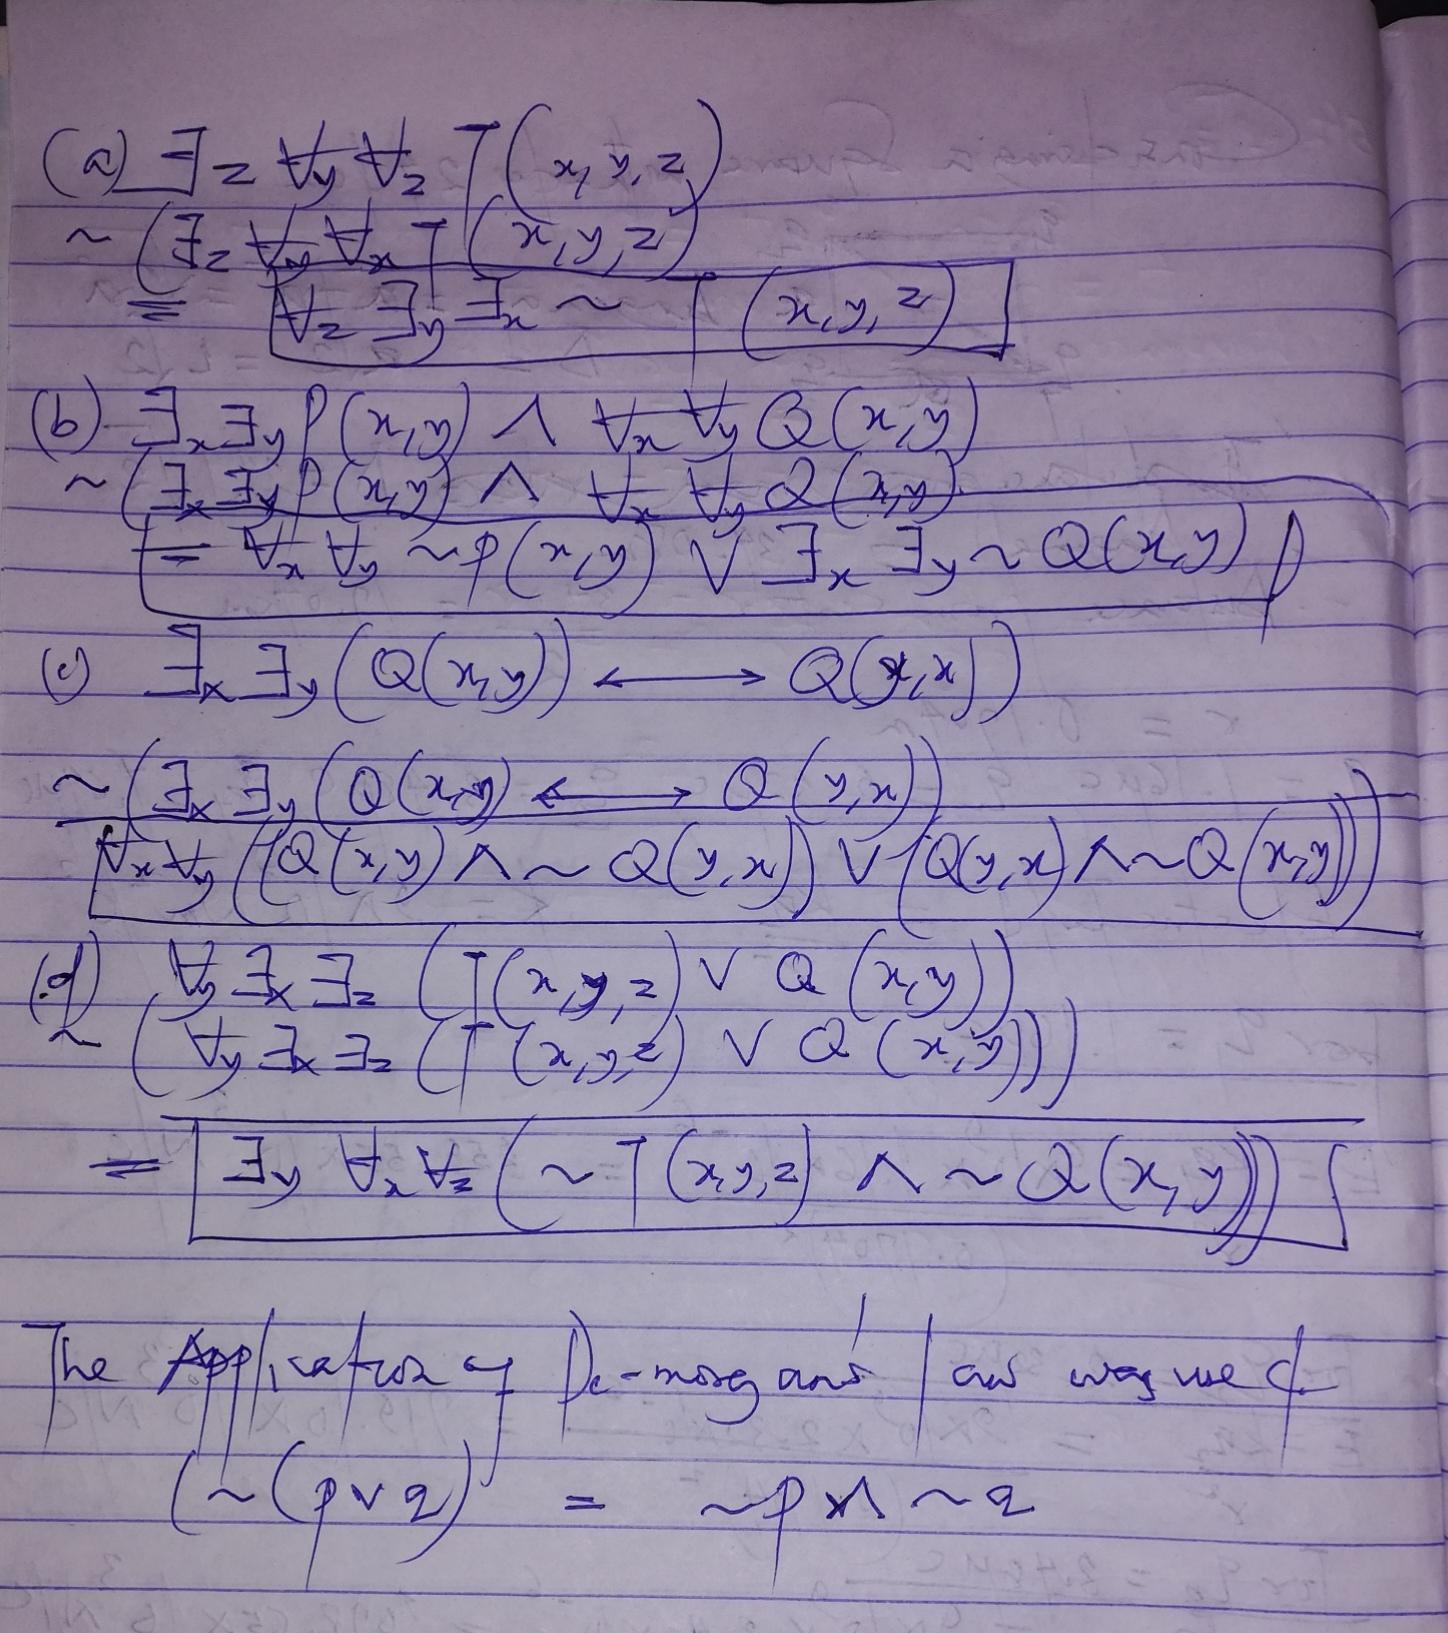 (a) ∃z ∀y ∀z T(x, y, z)
~(∃z ∀y ∀x T(x, y, z)
≡ ∀z ∃y ∃x ~ T(x, y, z)
(b) ∃x ∃y P(x, y) ∧ ∀x ∀y Q(x, y)
~(∃x ∃y P(x, y) ∧ ∀x ∀y Q(x, y)
= ∀x ∀y ~P(x, y) ∨ ∃x ∃y ~ Q(x, y)
(c) ∃x ∃y (Q(x, y)) ⟷ Q(y, x))
~(∃x ∃y (Q(x, y) ⟷ Q(y, x))
∀x ∀y ((Q(x, y) ∧ ~ Q(y, x)) ∨ (Q(y, x) ∧ ~ Q(x, y)))
(d) ∀y ∃x ∃z (T(x, y, z) ∨ Q(x, y))
~(∀y ∃x ∃z (T(x, y, z) ∨ Q(x, y)))
= ∃y ∀x ∀z (~ T(x, y, z) ∧ ~ Q(x, y))
The Application of De-morgan's law was used
(~(p ∨ q) = ~p ∧ ~q